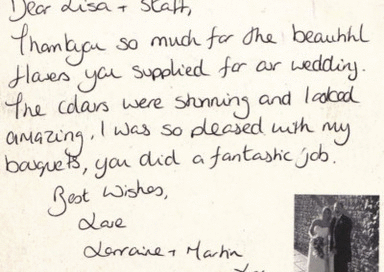 Dear Lisa + Staff,
Thankyou so much for the beautiful
flowers you supplied for our wedding.
The colours were stunning and looked
amazing. I was so pleased with my
bouquets, you did a fantastic job.
Best Wishes,
Love
Lorraine + Martin